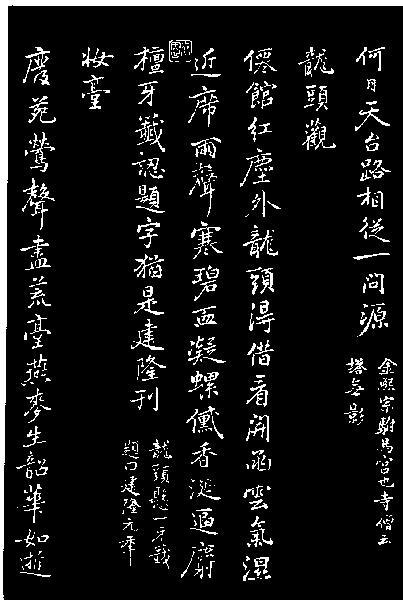 何日天台路相從一問源
金熙宗駙馬宮也寺僧云
塔無影
龍頭觀
僊館紅塵外龍頭得借看開函雲氣濕
近席雨聲寒碧凝螺香涎逼麝
檀牙籤認題字猶是建隆刊
龍頭懸一牙籤
題曰建隆元年
妝臺
廢苑鶯聲盡荒臺燕麥生韶華如逝